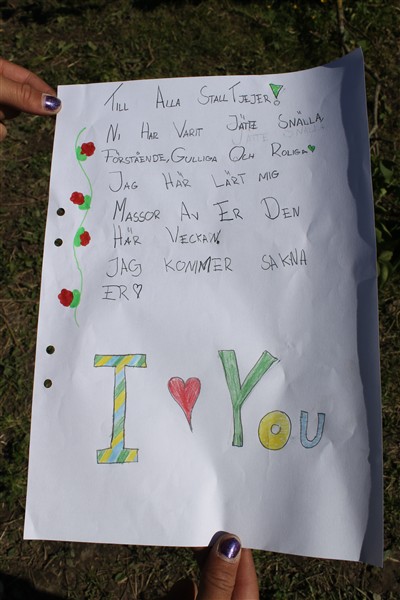 Till Alla StallTjejer!
Ni Har Varit Jätte Snälla
Förstående, Gulliga Och Roliga
Jag Här Lärt Mig
Massor Av Er Den
Här Veckan.
Jag kommer sakna
er
I You